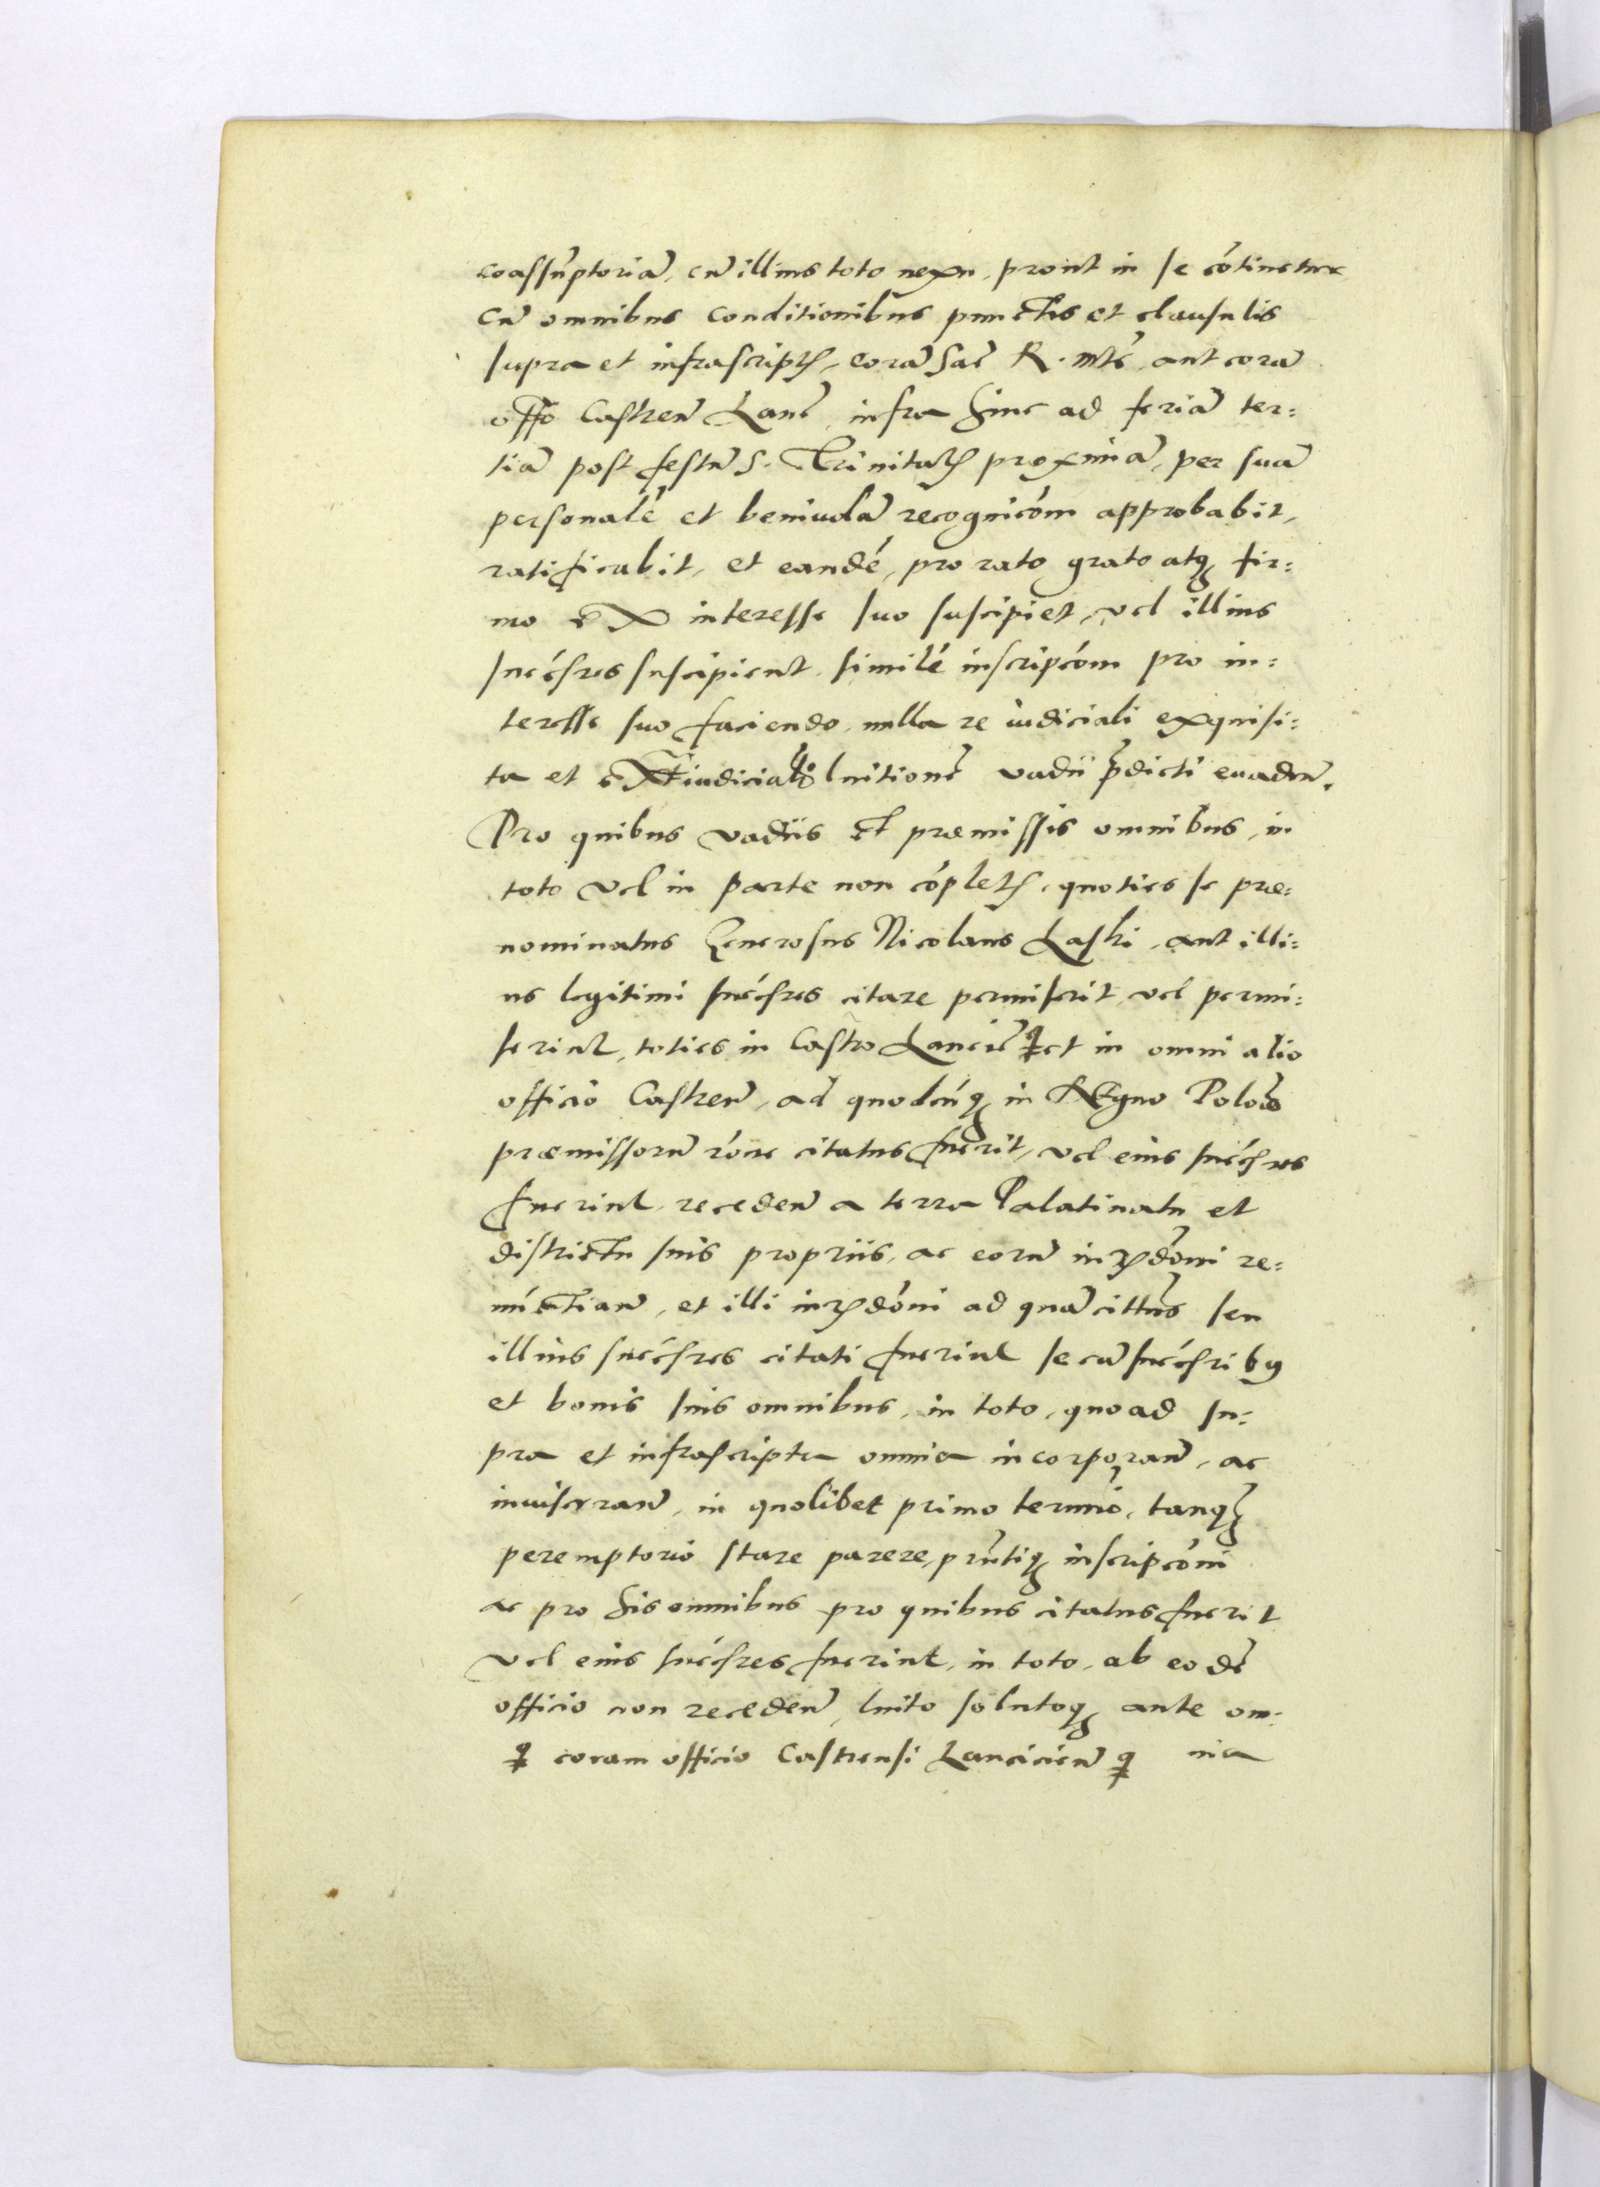 coassũptoriã, cũ illius toto nexu, prout in se cõtinetur
Cũ omnibus conditionibus punctis et clausulis
supra et infrascriptis, corã Sac̃ R. mtẽ, aut corã
offo Castreñ Lanc̃, infra hinc ad feriã ter:
tiã post festũ S. Trinitatis proximã, per suã
personalẽ et beniuolã recognicõm approbabit,
ratificabit, et eandẽ, pro rato grato atq̃ fir:
mo ex interesse suo suscipiet, vel illius
succẽsres suscipient, similẽ inscripcõm pro in:
teresse suo faciendo, nulla re iudiciali exquisi:
ta et extiudiciali luitionẽ vadii p̃dicti euadeñ.
Pro quibus vadiis et præmissis omnibus, in
toto vel in parte non cõpletis, quoties se præ:
nominatus Generosus Nicolaus Laski, aut illi:
us legitimi succẽsres citare permiserit, vel permi:
serint, toties in Castro Lancicẽ et in omni alio
officio Castreñ, ad quodcũq̃ in Regno Poloniæ
præmissorũ rõne citatus fuerit, vel eius succẽsres
fuerint, recedeñ a terra Palatinatu et
districtu suis propriis, ac eorũ iurisdõni re:
nũctiañ, et illi iurisdõni ad quã citatus seu
illius succẽsres citati fuerint se cũ succẽsribus
et bonis suis omnibus, in toto, quoad su:
pra et infrascripta omnia incorporañ, ac
inuiscerañ, in quolibet primo termio, tanq̃
peremptorio stare parere, pr̃ntiq̃ inscripcõni
ac pro his omnibus pro quibus citatus fuerit
vel eius succẽsres fuerint, in toto, ab eodẽ
officio non recedeñ, luito solutoq̃ ante om:
coram officio Castrensi Lancicieñ nia